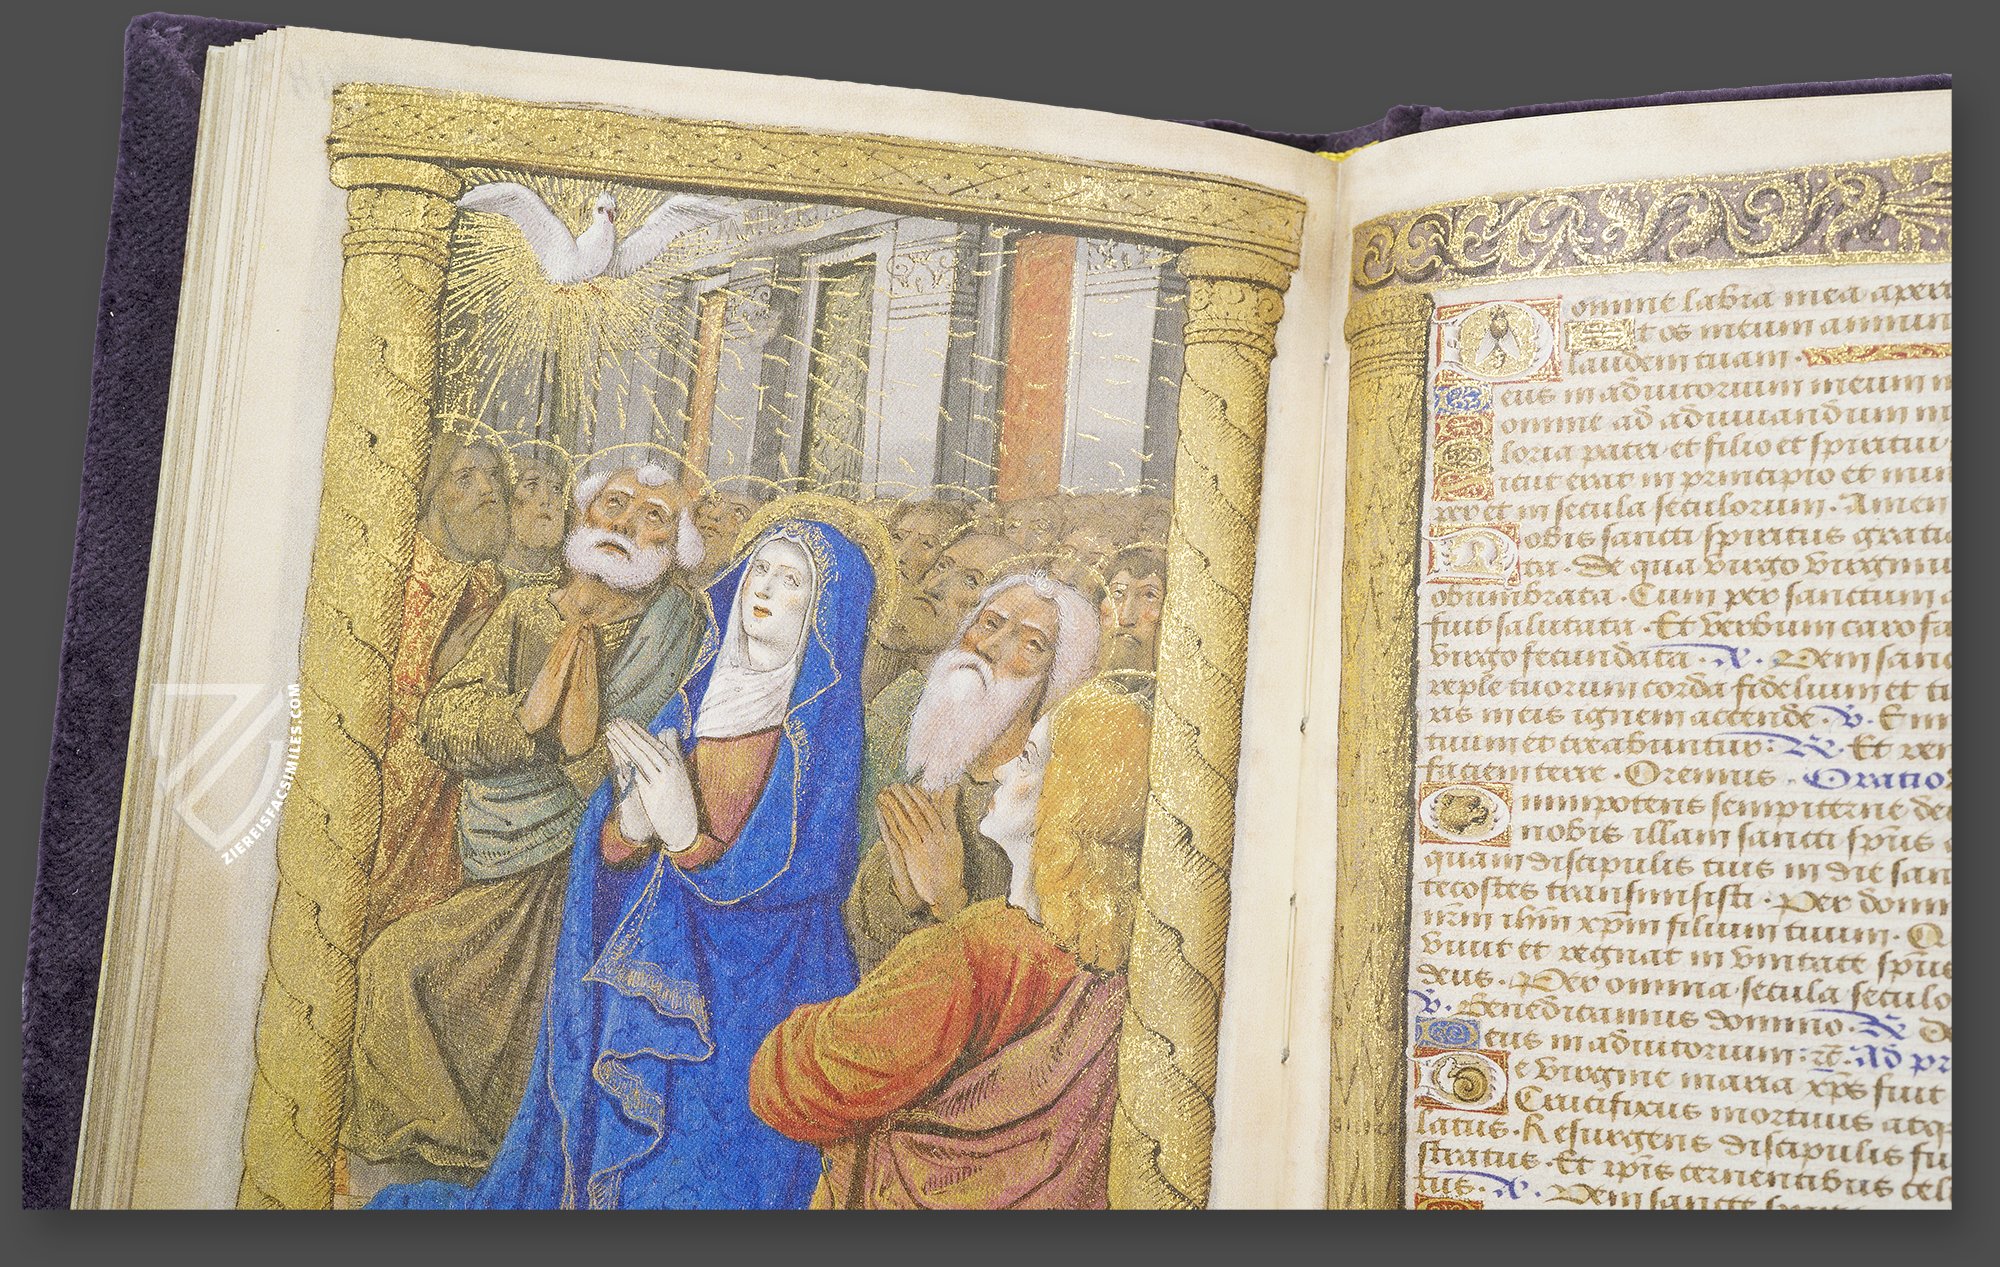 omine labia mea aperi
t os meum annun
laudem tuam.
eus in adiutorium meum in
omine ad adiuuandum m
loria patri et filio et spiritui
icut erat in principio et nun
per et in secula seculorum. Amen
obis sancti spiritus gratia
ta. De qua virgo virginum
obumbrata. Cum per sanctum a
fuit salutata. Et verbum caro fa
virgo fecundata. Veni sanc
reple tuorum corda fidelium et tu
is meis ignem accende. v. Emi
tuum et creabuntur: R. Et ren
faciem terre. Oremus. Oratio
mnipotens sempiterne de
nobis illam sancti sp̄us
quam discipulis tuis in die san
tecostes transmisisti. Per domi
nr̄m ih̄m xp̄m filium tuum. Q
viuit et regnat in vnitate sp̄us
deus. Per omnia secula seculo
v. Benedicamus domino. R. De
eus in adiutorium: Ad pr
e virgine maria xp̄s fuit
Crucifixus mortuus atq
latus. Resurgens discipulis fu
stratus. Et ip̄is cernentibus cel
tus. Veni sancte
ZIEREISFACSIMILES.COM